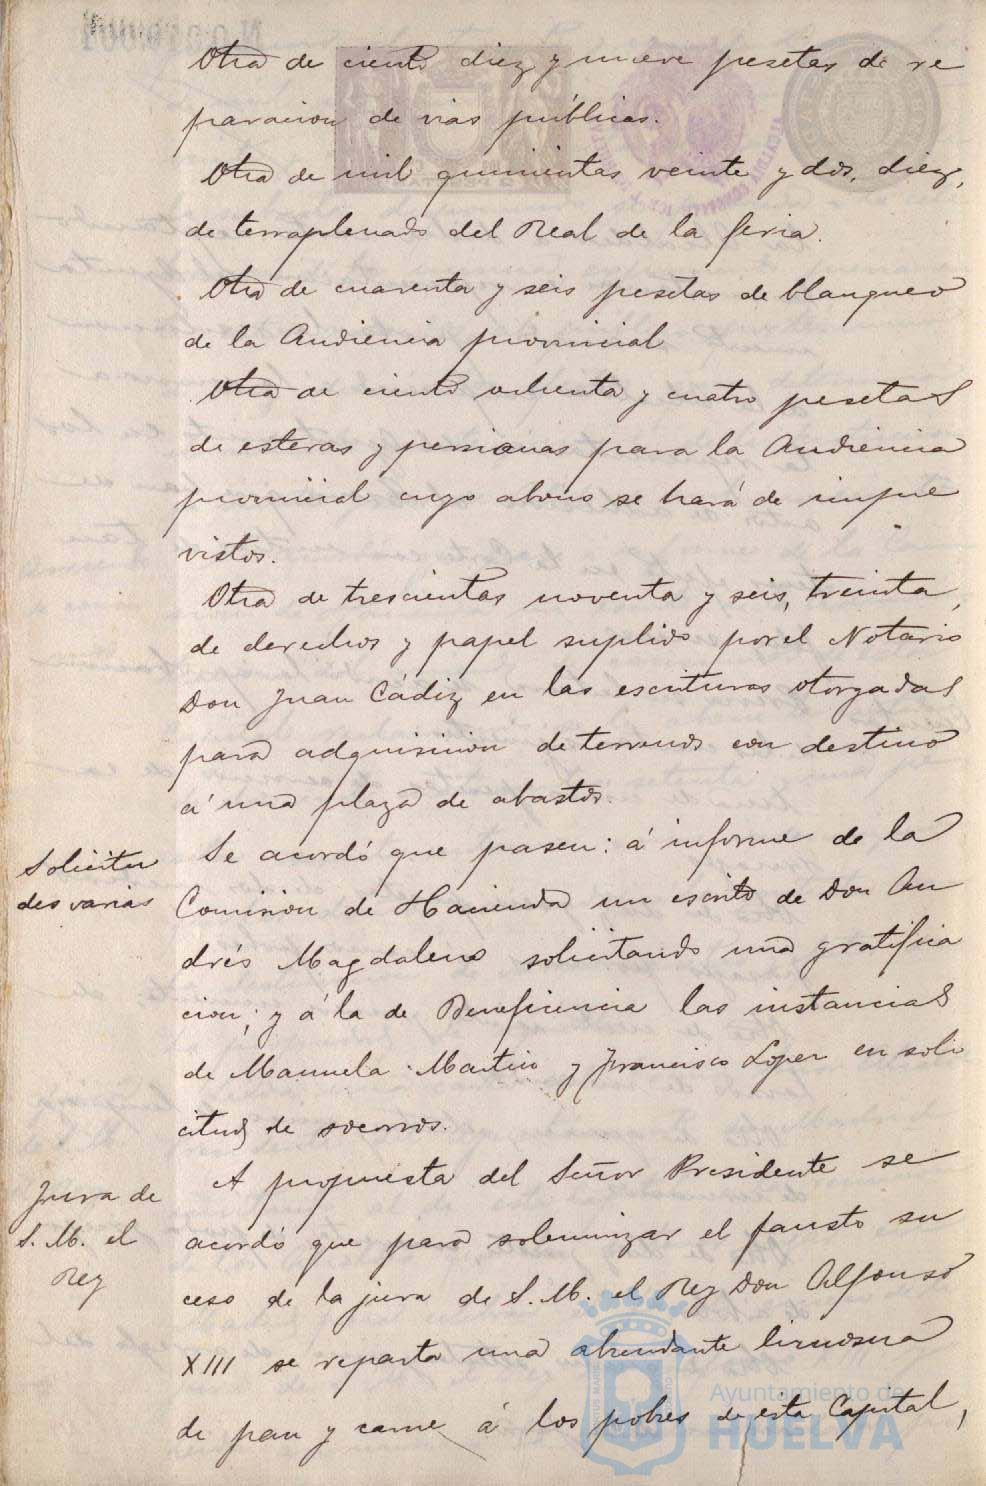 Otra de ciento diez y nueve pesetas de re
paracion de vias públicas.
Otra de mil quinientas veinte y dos, diez,
de terraplenado del Real de la feria.
Otra de cuarenta y seis pesetas de blanqueo
de la Audiencia provincial
Otra de ciento ochenta y cuatro pesetas
de esteras y persianas para la Audiencia
provincial cuyo abono se hará de impre
vistos.
Otra de trescientas noventa y seis, treinta,
de derechos y papel suplido por el Notario
Don Juan Cádiz en las escrituras otorgadas
para adquisicion de terrenos con destino
á una plaza de abastos.
Solicitu
des varias
Se acordó que pasen: á informe de la
Comision de Hacienda un escrito de Don An
drés Magdaleno solicitando una gratifica
cion; y á la de Beneficencia las instancias
de Manuela Martin y Francisco Lopez en soli
citud de socorros.
Jura de
S. M. el
Rey
A propuesta del Señor Presidente se
acordó que para solemnizar el fausto su
ceso de la jura de S. M. el Rey Don Alfonso
XIII se reparta una abundante limosna
de pan y carne á los pobres de esta Capital,
Ayuntamiento de
HUELVA